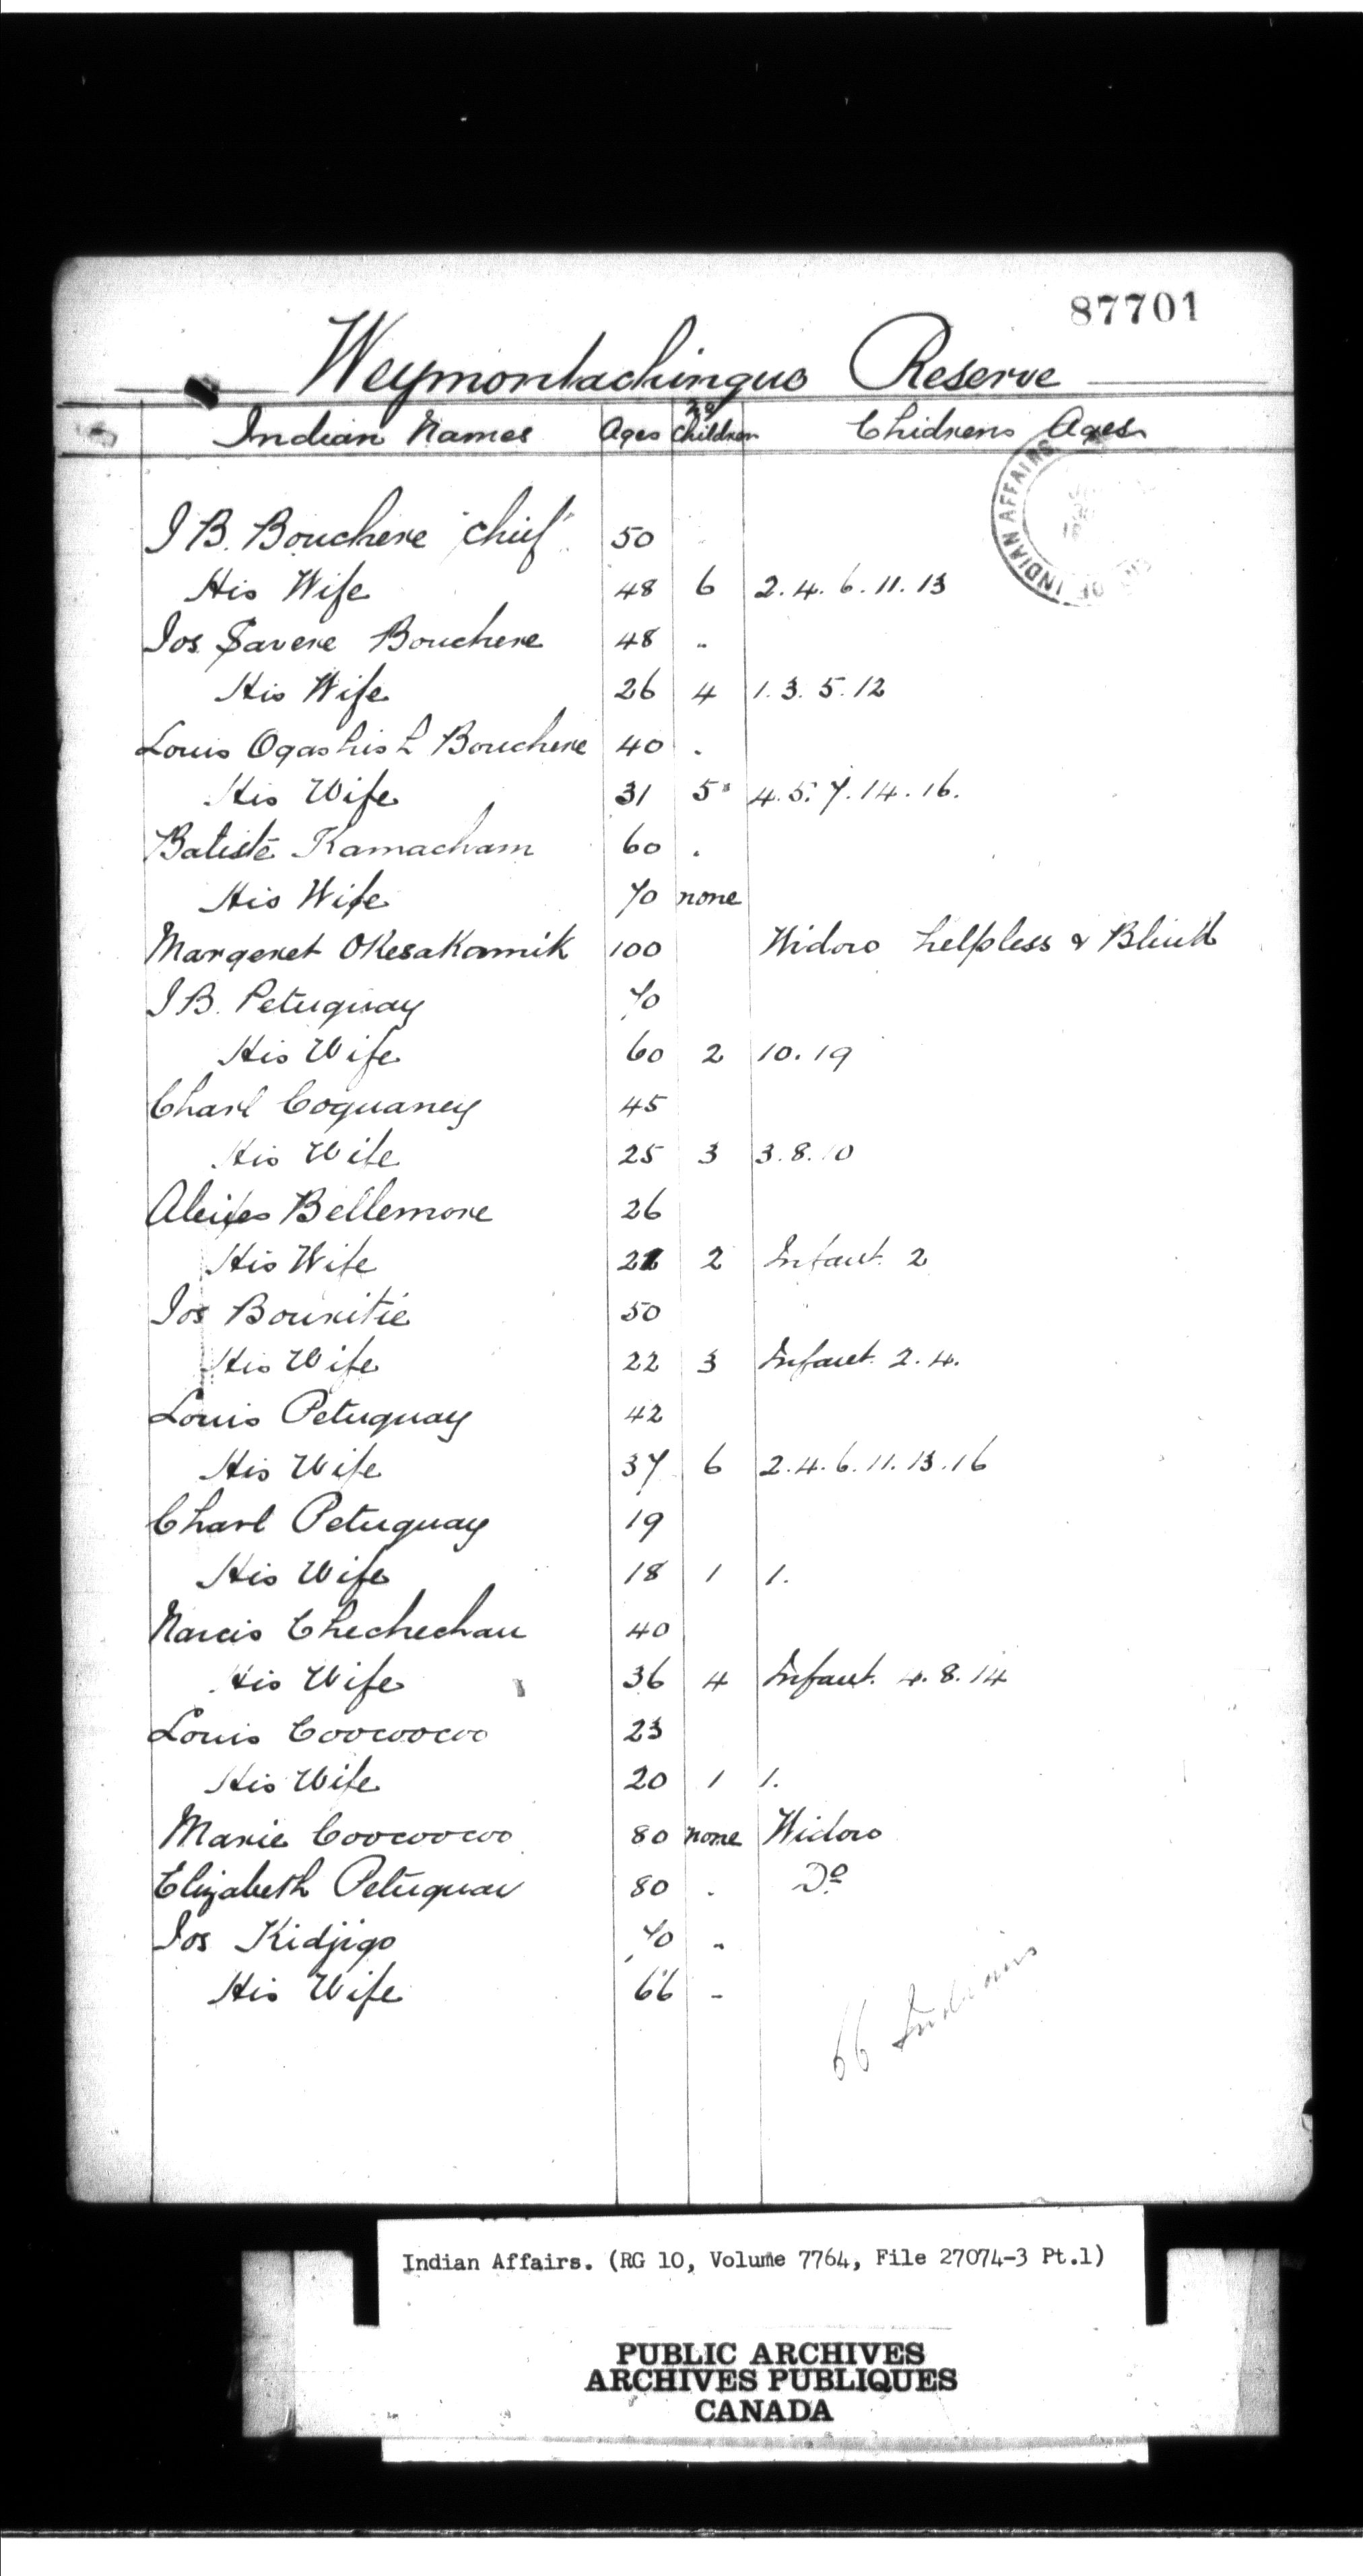 87701
Weymontachingue Reserve
Indian Names Ages No Children Chidrens Ages
INDIAN AFFAIRS
J B. Bouchere "Chief" 50
His Wife 48 6 2. 4. 6. 11. 13
Jos. Savere Bouchere 48 "
His Wife 26 4 1. 3. 5. 12
Louis Bouchere 40 .
His Wife 31 5 4. 5. 7. 14. 16.
Batiste Kamacham 60 .
His Wife 70 none
Margeret Okesakamik 100 Widow helpless & Blind
J B. Petuquay 70
His Wife 60 2 10. 19
Charl Coquaney 45
His Wife 25 3 3. 8. 10
Bellemore 26
His Wife 2 Infant. 2
Jos Bouritie 50
His Wife 22 3 Infant. 2. 4.
Louis Petuquay 42
His Wife 37 6 2. 4. 6. 11. 13. 16
Charl Petuquay 19
His Wife 18 1 1.
Narcis Chechechau 40
His Wife 36 4 Infant. 4. 8. 14
Louis Coocoocoo 23
His Wife 20 1 1.
Marie Coocoocoo 80 none Widow
Elizabeth Petuquay 80 . Do
Jos Kidjigo 70 "
His Wife 66 -
66 Indians
Indian Affairs. (RG 10, Volume 7764, File 27074-3 Pt.1)
PUBLIC ARCHIVES
ARCHIVES PUBLIQUES
CANADA